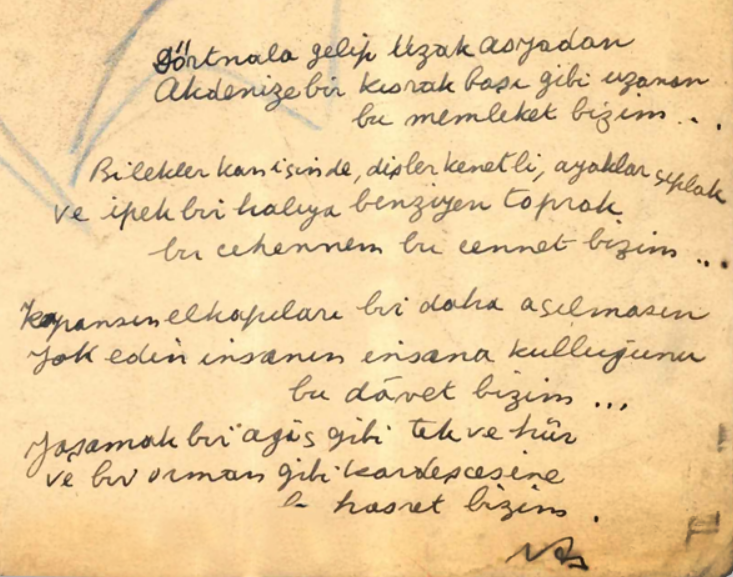 Dörtnala gelip Uzak asyadan
Akdenize bir kısrak başı gibi uzanan
bu memleket bizim...
Bilekler kan içinde, dişler kenetli, ayaklar çıplak
ve ipek bir halıya benziyen toprak
bu cehennem bu cennet bizim...
Kapansın el kapıları bir daha açılmasın
yok edin insanın insana kulluğunu
bu dâvet bizim...
Yaşamak bir ağaç gibi tek ve hür
ve bir orman gibi kardeşcesine
hasret bizim.